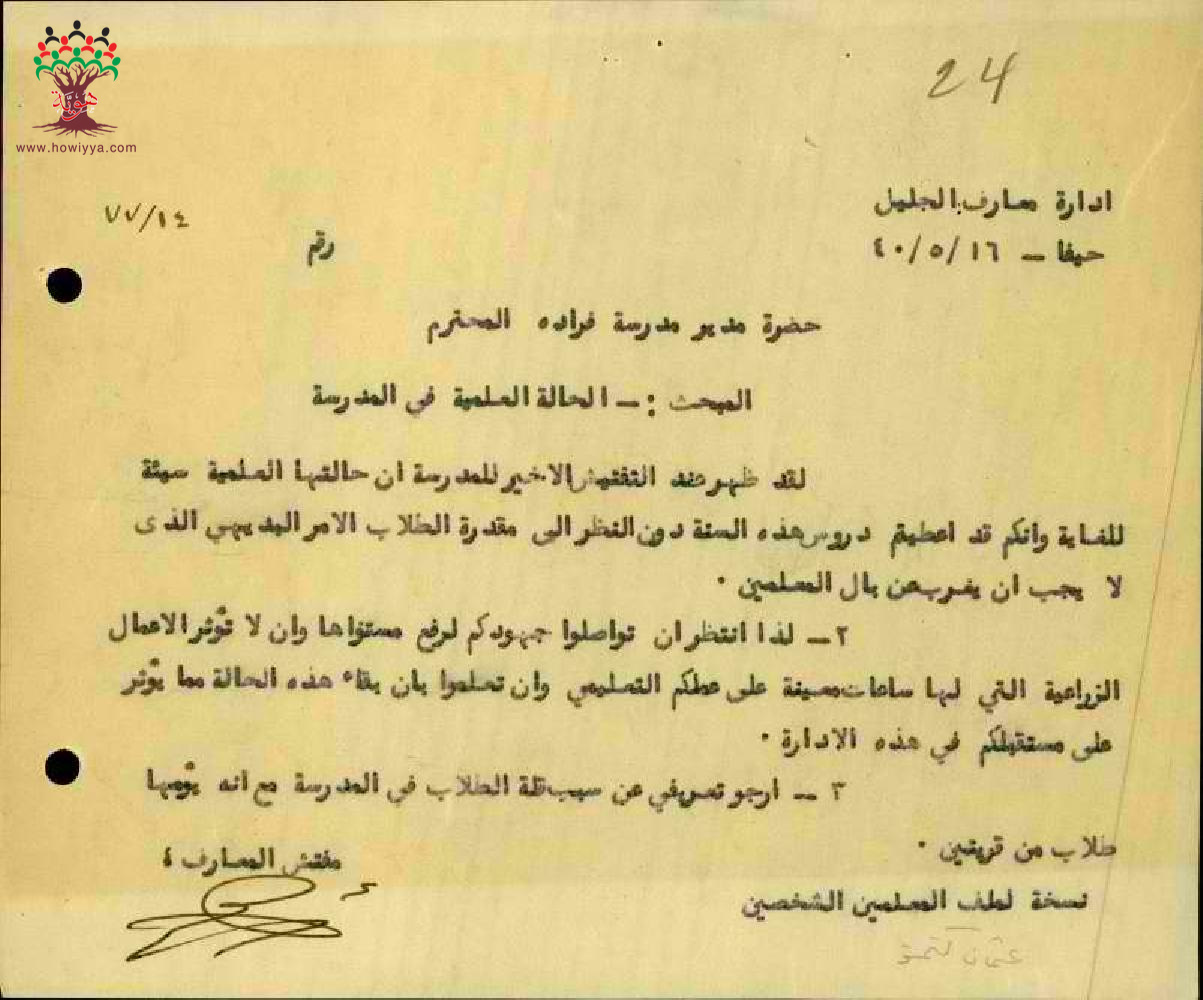 24
هوية
www.howiyya.com
ادارة معارف الجليل
٧٧/١٤
حيفا – ٤٠/٥/١٦
رقم
حضرة مدير مدرسة فراده المحترم
المبحث :– الحالة العلمية في المدرسة
لقد ظهر عند التفتيش الاخير للمدرسة ان حالتها العلمية سيئة
للغاية وانكم قد اعطيتم دروس هذه السنة دون النظر الى مقدرة الطلاب الامر البديهي الذى
لا يجب ان يغرب عن بال المعلمين ٠
٢ – لذا انتظر ان تواصلوا جهودكم لرفع مستواها وان لا تؤثر الاعمال
الزراعية التي لها ساعات معينة على عملكم التعليمي وان تعلموا بان بقاء هذه الحالة مما يؤثر
على مستقبلكم في هذه الادارة ٠
٣ – ارجو تعريفي عن سبب قلة الطلاب في المدرسة مع انه يؤمها
طلاب من قريتين ٠
مفتش المعارف ٤
نسخة لملف المعلمين الشخصيين